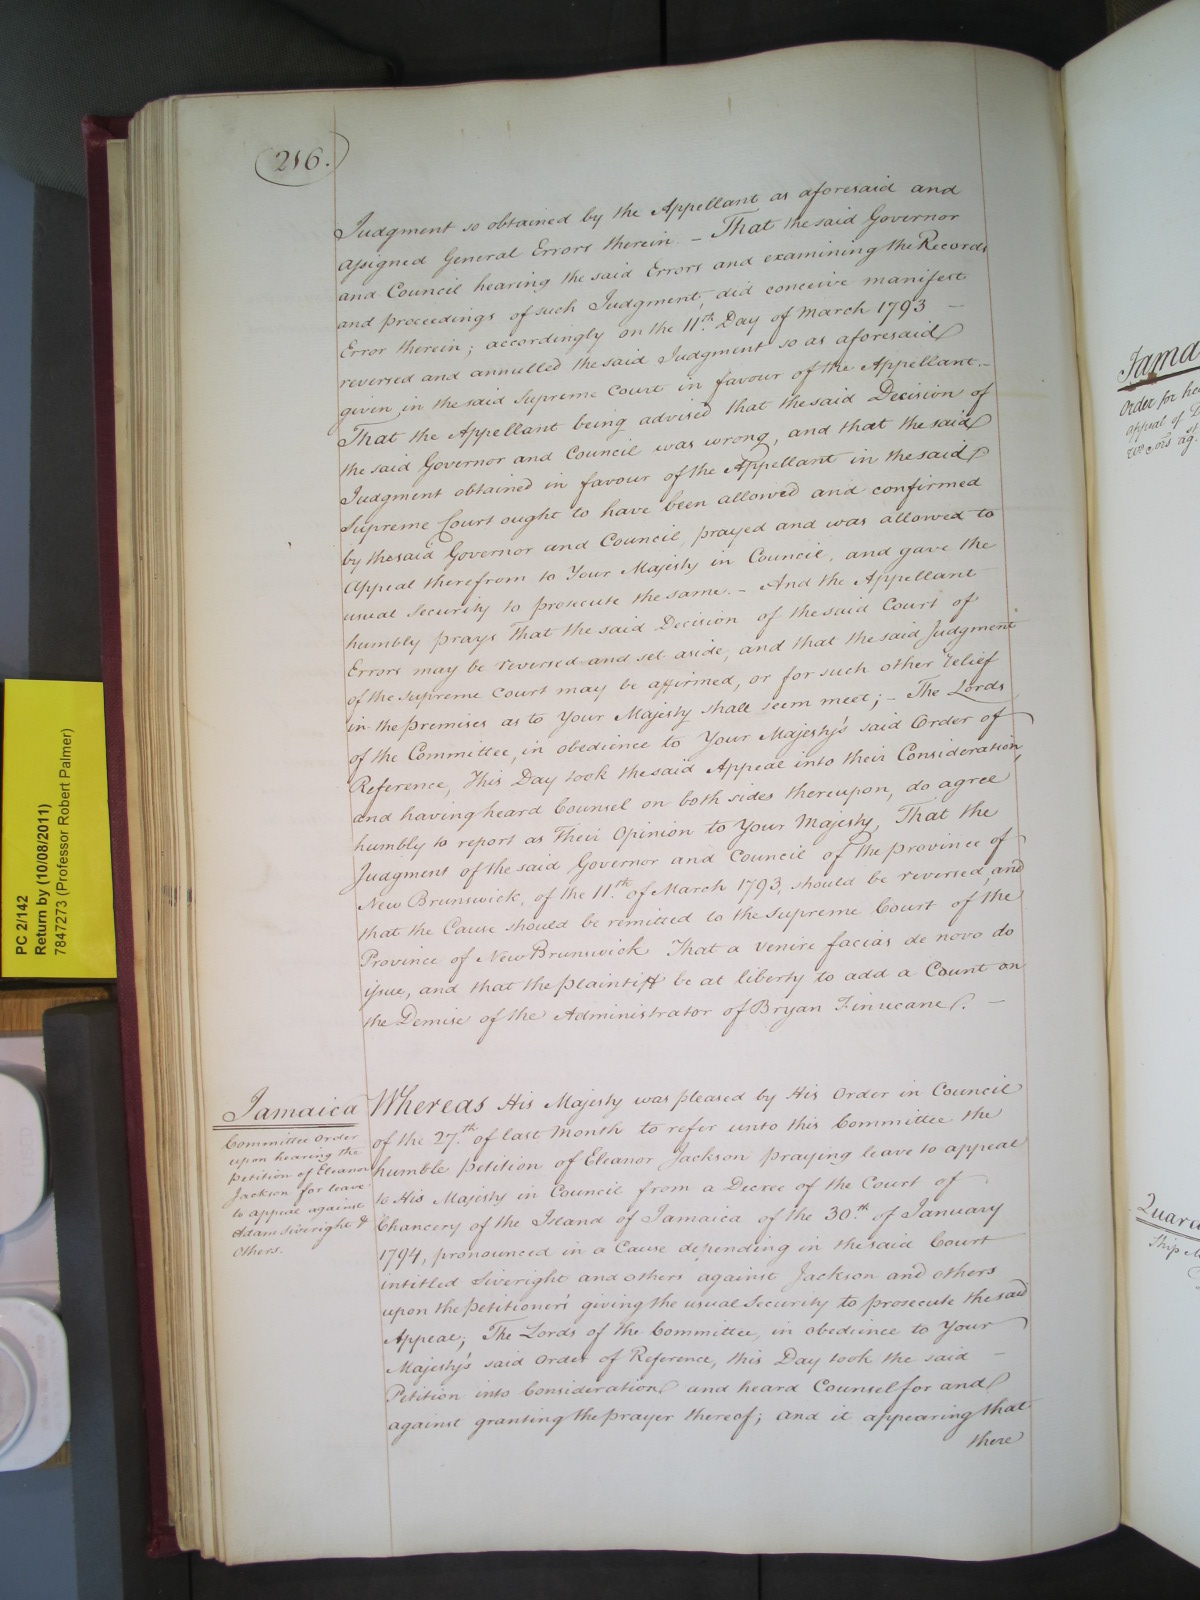 216.
Judgment so obtained by the Appellant as aforesaid and
assigned General Errors therein. – That the said Governor
and Council hearing the said Errors and examining the Records
and proceedings of such Judgment, did conceive manifest
Error therein; accordingly on the 11th. Day of March 1793 –
reversed and annulled the said Judgment so as aforesaid
given in the said Supreme Court in favour of the Appellant. –
That the Appellant being advised that the said Decision of
the said Governor and Council was wrong, and that the said
Judgment obtained in favour of the Appellant in the said
Supreme Court ought to have been allowed and confirmed
by the said Governor and Council, prayed and was allowed to
Appeal therefrom to Your Majesty in Council, and gave the
usual Security to prosecute the same. – And the Appellant
humbly prays That the said Decision of the said Court of
Errors may be reversed and set aside, and that the said Judgment
of the Supreme Court may be affirmed, or for such other relief
in the premises as to Your Majesty shall seem meet; – The Lords
of the Committee, in obedience to Your Majesty's said Order of
Reference, This Day took the said Appeal into their Consideration,
and having heard Counsel on both sides thereupon, do agree
humbly to report as Their Opinion to Your Majesty, That the
Judgment of the said Governor and Council of the province of
New Brunswick, of the 11th. of March 1793, should be reversed, and
that the Cause should be remitted to the Supreme Court of the
Province of New Brunswick That a venire facias de novo do
issue, and that the plaintiff be at liberty to add a Count on
the Demise of the Administrator of Bryan Finucane. –
Jamaica
Committee Order
upon hearing the
Petition of Eleanor
Jackson for leave
to appeal against
Adam Siveright &
others.
Whereas His Majesty was pleased by His Order in Council
of the 27th. of last Month to refer unto this Committee the
humble petition of Eleanor Jackson praying leave to appeal
to His Majesty in Council from a Decree of the Court of
Chancery of the Island of Jamaica of the 30th. of January
1794, pronounced in a Cause depending in the said Court
intitled Siveright and others against Jackson and others
upon the petitioner's giving the usual Security to prosecute the said
Appeal; The Lords of the Committee, in obedience to Your
Majesty's said Order of Reference, this Day took the said –
Petition into Consideration and heard Counsel for and
against granting the prayer thereof; and it appearing that
there
PC 2/142
Return by (10/08/2011)
7847273 (Professor Robert Palmer)
Order for
appeal of